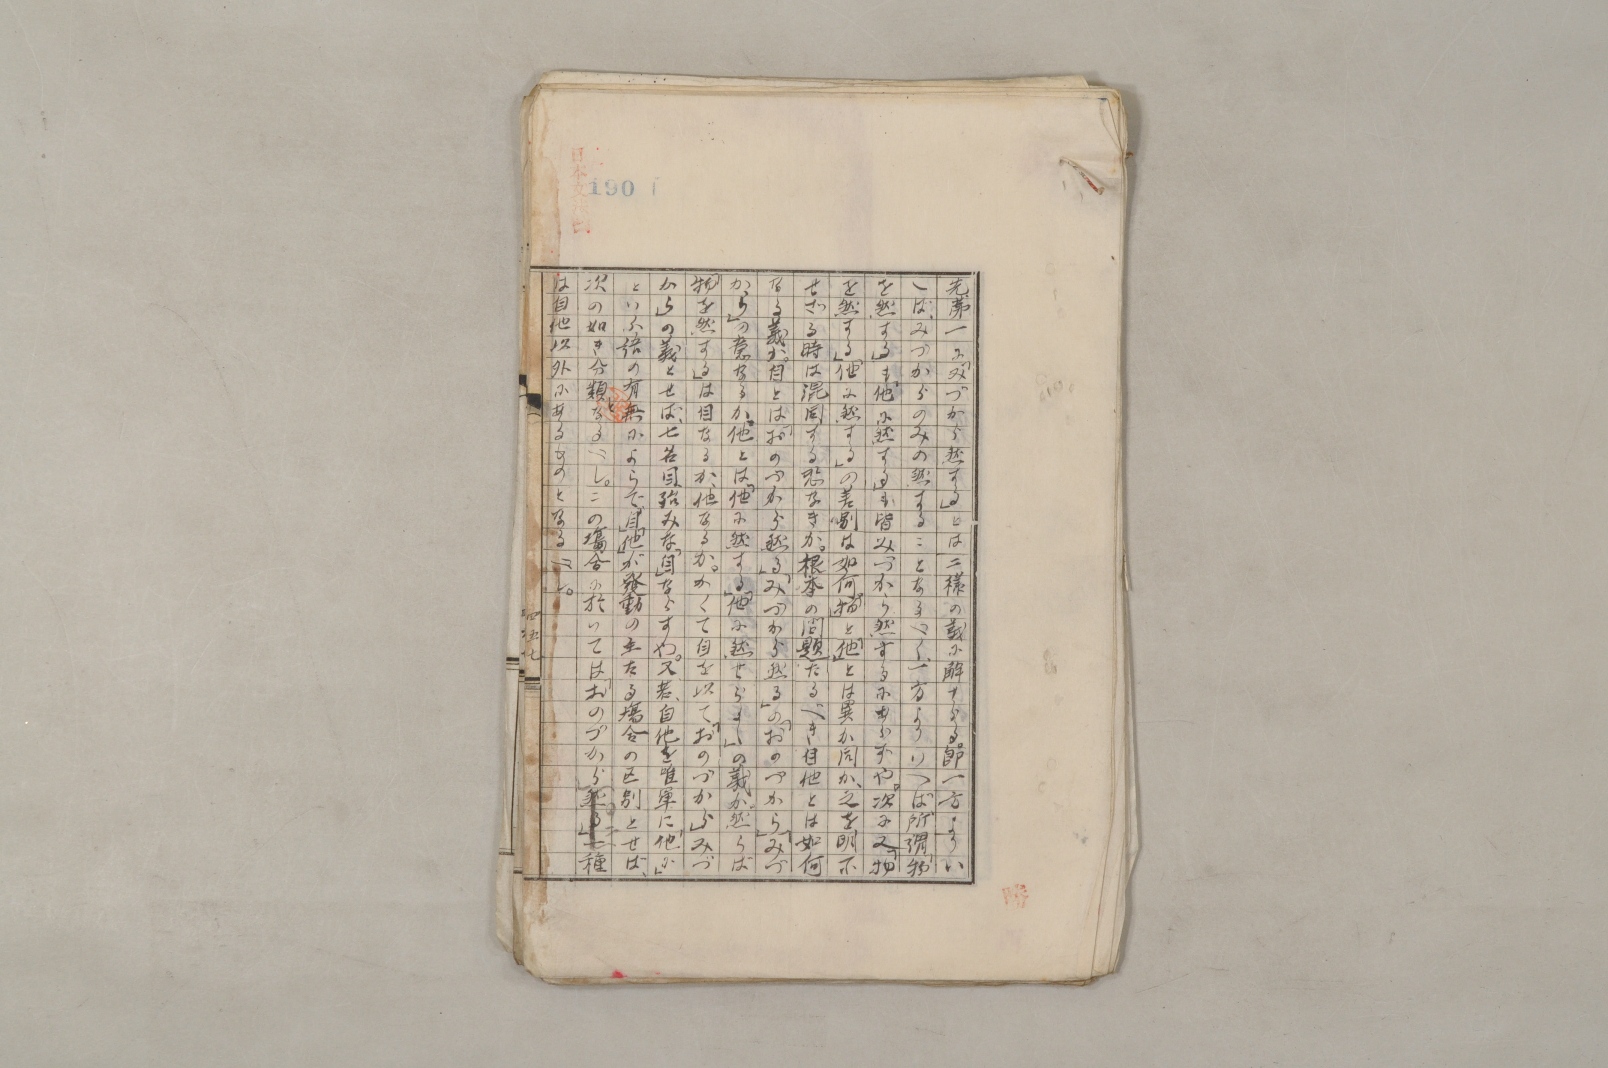 先第一に「みづから然する」とは二様の義に解せらる。即一方よりい
へば、みづからのみの然することなるべく、一方よりいへば所謂「物
を然する」も「他に然する」も皆みづから然するにあらずや。次に又「物
を然する」「他に然する」の差別は如何。「物」と「他」とは異か同か、之を明示
せざる時は混同する恐なきか。根本の問題たるべき自他とは如何
なる義か。自とは「おのづから然る」「みづから然る」の「おのづから」「みづ
から」の意なるか、他とは「他に然する」「他に然せらる」の義か、然らば
「物を然する」は自なるか、他なるか。かくて自を以て「おのづから」「みづ
から」の義とせば、七呰目殆みな「自」ならずや。又若、自他を唯単に「他に」
といふ語の有無によらで「自」「他」が発動の主たる場合の区別とせば、
次の如き分類となるべし。この場合に於いては「おのづから然る」一種
は自他以外にあるものとなるべし。
四五七
190
日本文法